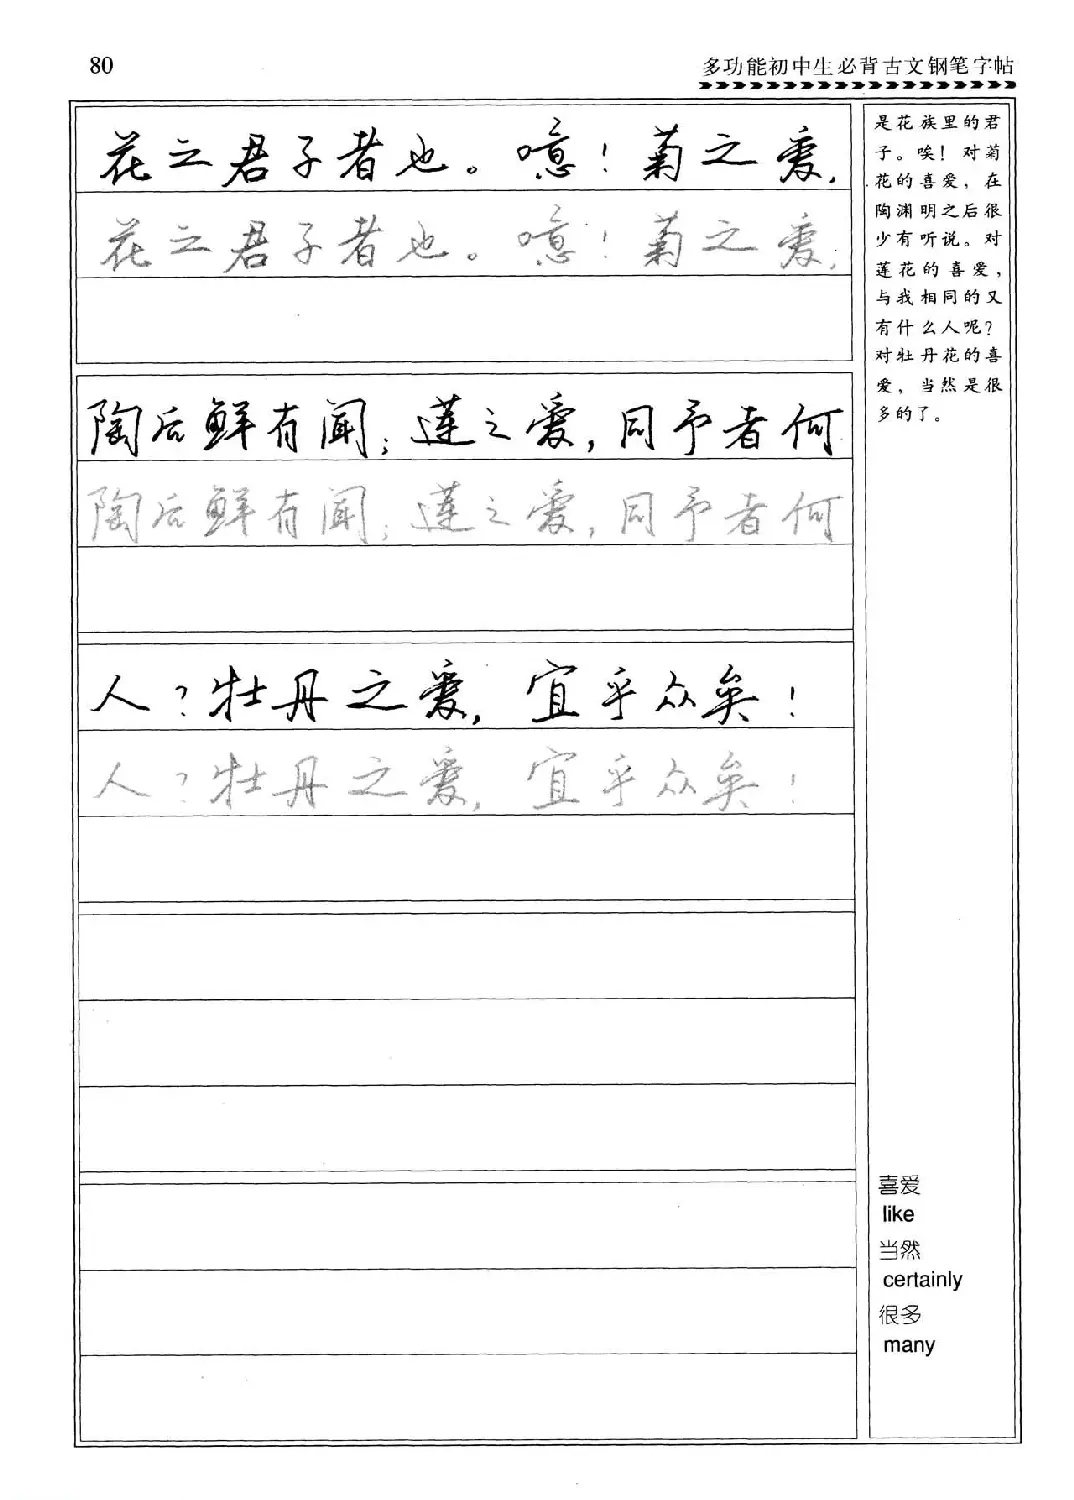 80
多功能初中生必背古文钢笔字帖
花之君子者也。噫！菊之爱，
花之君子者也。噫！菊之爱，
陶后鲜有闻；莲之爱，同予者何
陶后鲜有闻；莲之爱，同予者何
人？牡丹之爱，宜乎众矣！
人？牡丹之爱，宜乎众矣！
是花族里的君
子。唉！对菊
花的喜爱，在
陶渊明之后很
少有听说。对
莲花的喜爱，
与我相同的又
有什么人呢？
对牡丹花的喜
爱，当然是很
多的了。
喜爱
like
当然
certainly
很多
many